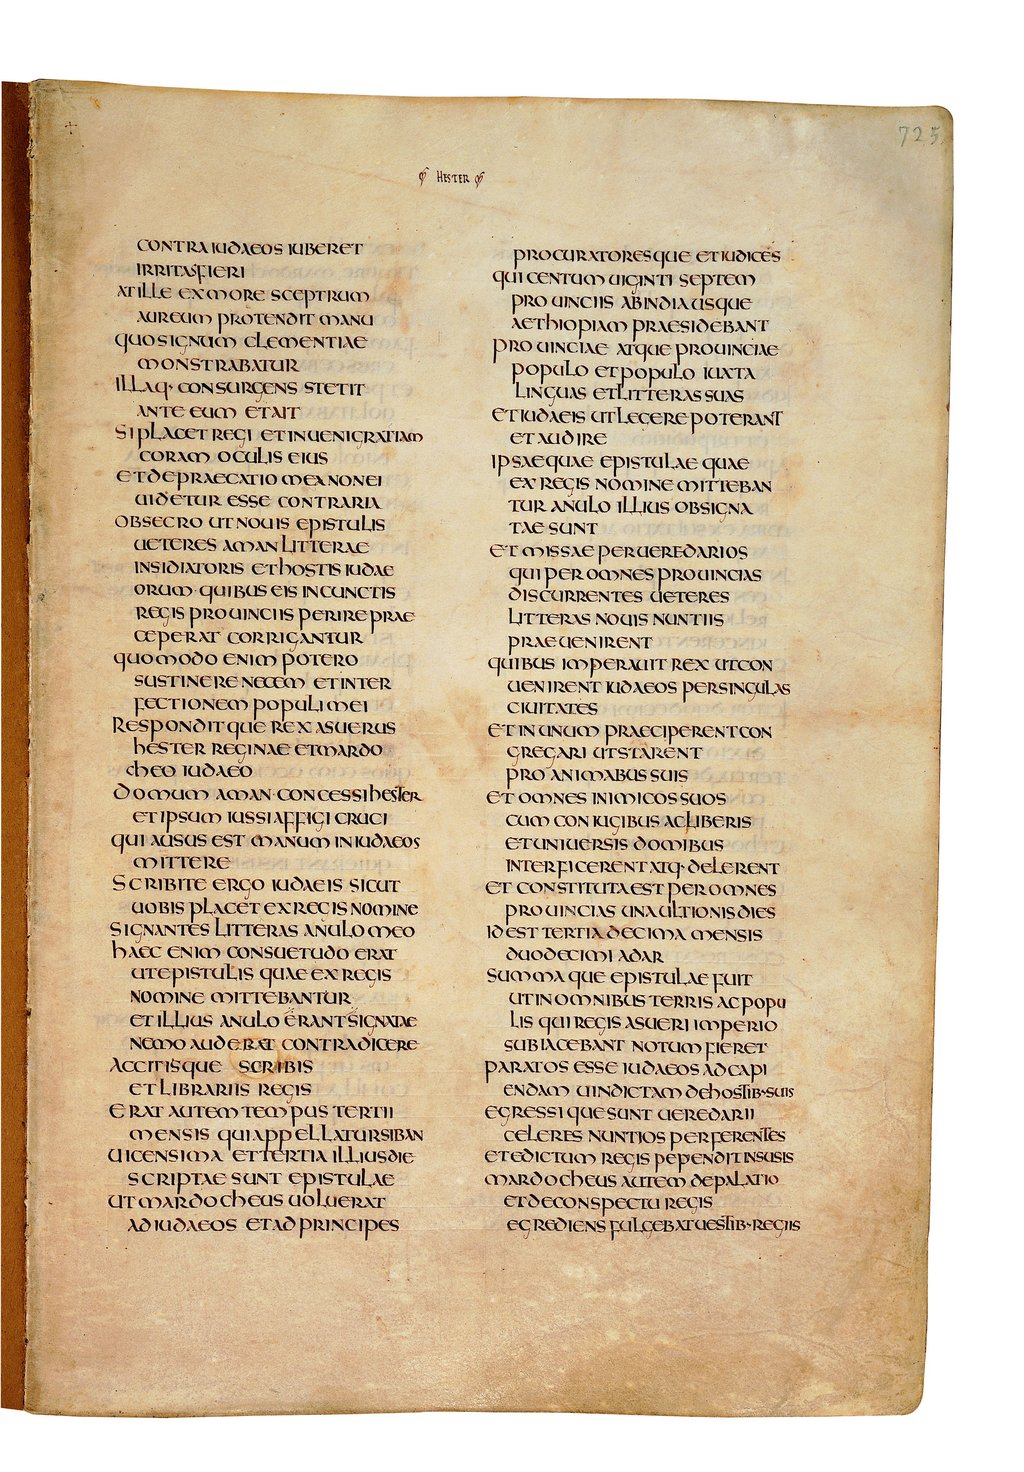 725
HESTER
CONTRA IUDAEOS IUBERET
IRRITAS FIERI
AT ILLE EX MORE SCEPTRUM
AUREUM PROTENDIT MANU
QUO SIGNUM CLEMENTIAE
MONSTRABATUR
ILLAQ· CONSURGENS STETIT
ANTE EUM ET AIT
SI PLACET REGI ET INUENI GRATIAM
CORAM OCULIS EIUS
ET DEPRAECATIO MEA NON EI
UIDETUR ESSE CONTRARIA
OBSECRO UT NOUIS EPISTULIS
UETERES AMAN LITTERAE
INSIDIATORIS ET HOSTIS IUDAE
ORUM· QUIBUS EIS IN CUNCTIS
REGIS PROUINCIIS PERIRE PRAE
CEPERAT CORRIGANTUR
QUOMODO ENIM POTERO
SUSTINERE NECEM ET INTER
FECTIONEM POPULI MEI
RESPONDITQUE REX ASUERUS
HESTER REGINAE ET MARDO
CHEO IUDAEO
DOMUM AMAN· CONCESSI HESTER
ET IPSUM IUSSI AFFIGI CRUCI
QUI AUSUS EST MANUM IN IUDAEOS
MITTERE
SCRIBITE ERGO IUDAEIS SICUT
UOBIS PLACET EX REGIS NOMINE
SIGNANTES LITTERAS ANULO MEO
HAEC ENIM CONSUETUDO ERAT
UT EPISTULIS QUAE EX REGIS
NOMINE MITTEBANTUR
ET ILLIUS ANULO ERANT SIGNATAE
NEMO AUDERAT CONTRADICERE
ACCITISQUE SCRIBIS
ET LIBRARIIS REGIS
ERAT AUTEM TEMPUS TERTII
MENSIS QUI APPELLATUR SIBAN
UICENSIMA ET TERTIA ILLIUS DIE
SCRIPTAE SUNT EPISTULAE
UT MARDOCHEUS UOLUERAT
AD IUDAEOS ET AD PRINCIPES
PROCURATORESQUE ET IUDICES
QUI CENTUM UIGINTI SEPTEM
PROUINCIIS AB INDIA USQUE
AETHIOPIAM PRAESIDEBANT
PROUINCIAE ATQUE PROUINCIAE
POPULO ET POPULO IUXTA
LINGUAS ET LITTERAS SUAS
ET IUDAEIS UT LEGERE POTERANT
ET AUDIRE
IPSAEQUAE EPISTULAE QUAE
EX REGIS NOMINE MITTEBAN
TUR ANULO ILLIUS OBSIGNA
TAE SUNT
ET MISSAE PER UEREDARIOS
QUI PER OMNES PROUINCIAS
DISCURRENTES UETERES
LITTERAS NOUIS NUNTIIS
PRAEUENIRENT
QUIBUS IMPERAUIT REX UT CON
UENIRENT IUDAEOS PER SINGULAS
CIUITATES
ET IN UNUM PRAECIPERENT CON
GREGARI UT STARENT
PRO ANIMABUS SUIS
ET OMNES INIMICOS SUOS
CUM CONIUGIBUS AC LIBERIS
ET UNIUERSIS DOMIBUS
INTERFICERENT ATQ· DELERENT
ET CONSTITUTA EST PER OMNES
PROUINCIAS UNA ULTIONIS DIES
ID EST TERTIA DECIMA MENSIS
DUODECIMI ADAR
SUMMAQUE EPISTULAE FUIT
UT IN OMNIBUS TERRIS AC POPU
LIS QUI REGIS ASUERI IMPERIO
SUBIACEBANT NOTUM FIERET
PARATOS ESSE IUDAEOS AD CAPI
ENDAM UINDICTAM DE HOSTIB· SUIS
EGRESSIQUE SUNT UEREDARII
CELERES NUNTIOS PERFERENTES
ET EDICTUM REGIS PEPENDIT IN SUSIS
MARDOCHEUS AUTEM DE PALATIO
ET DE CONSPECTU REGIS
EGREDIENS FULGEBAT UESTIB· REGIIS